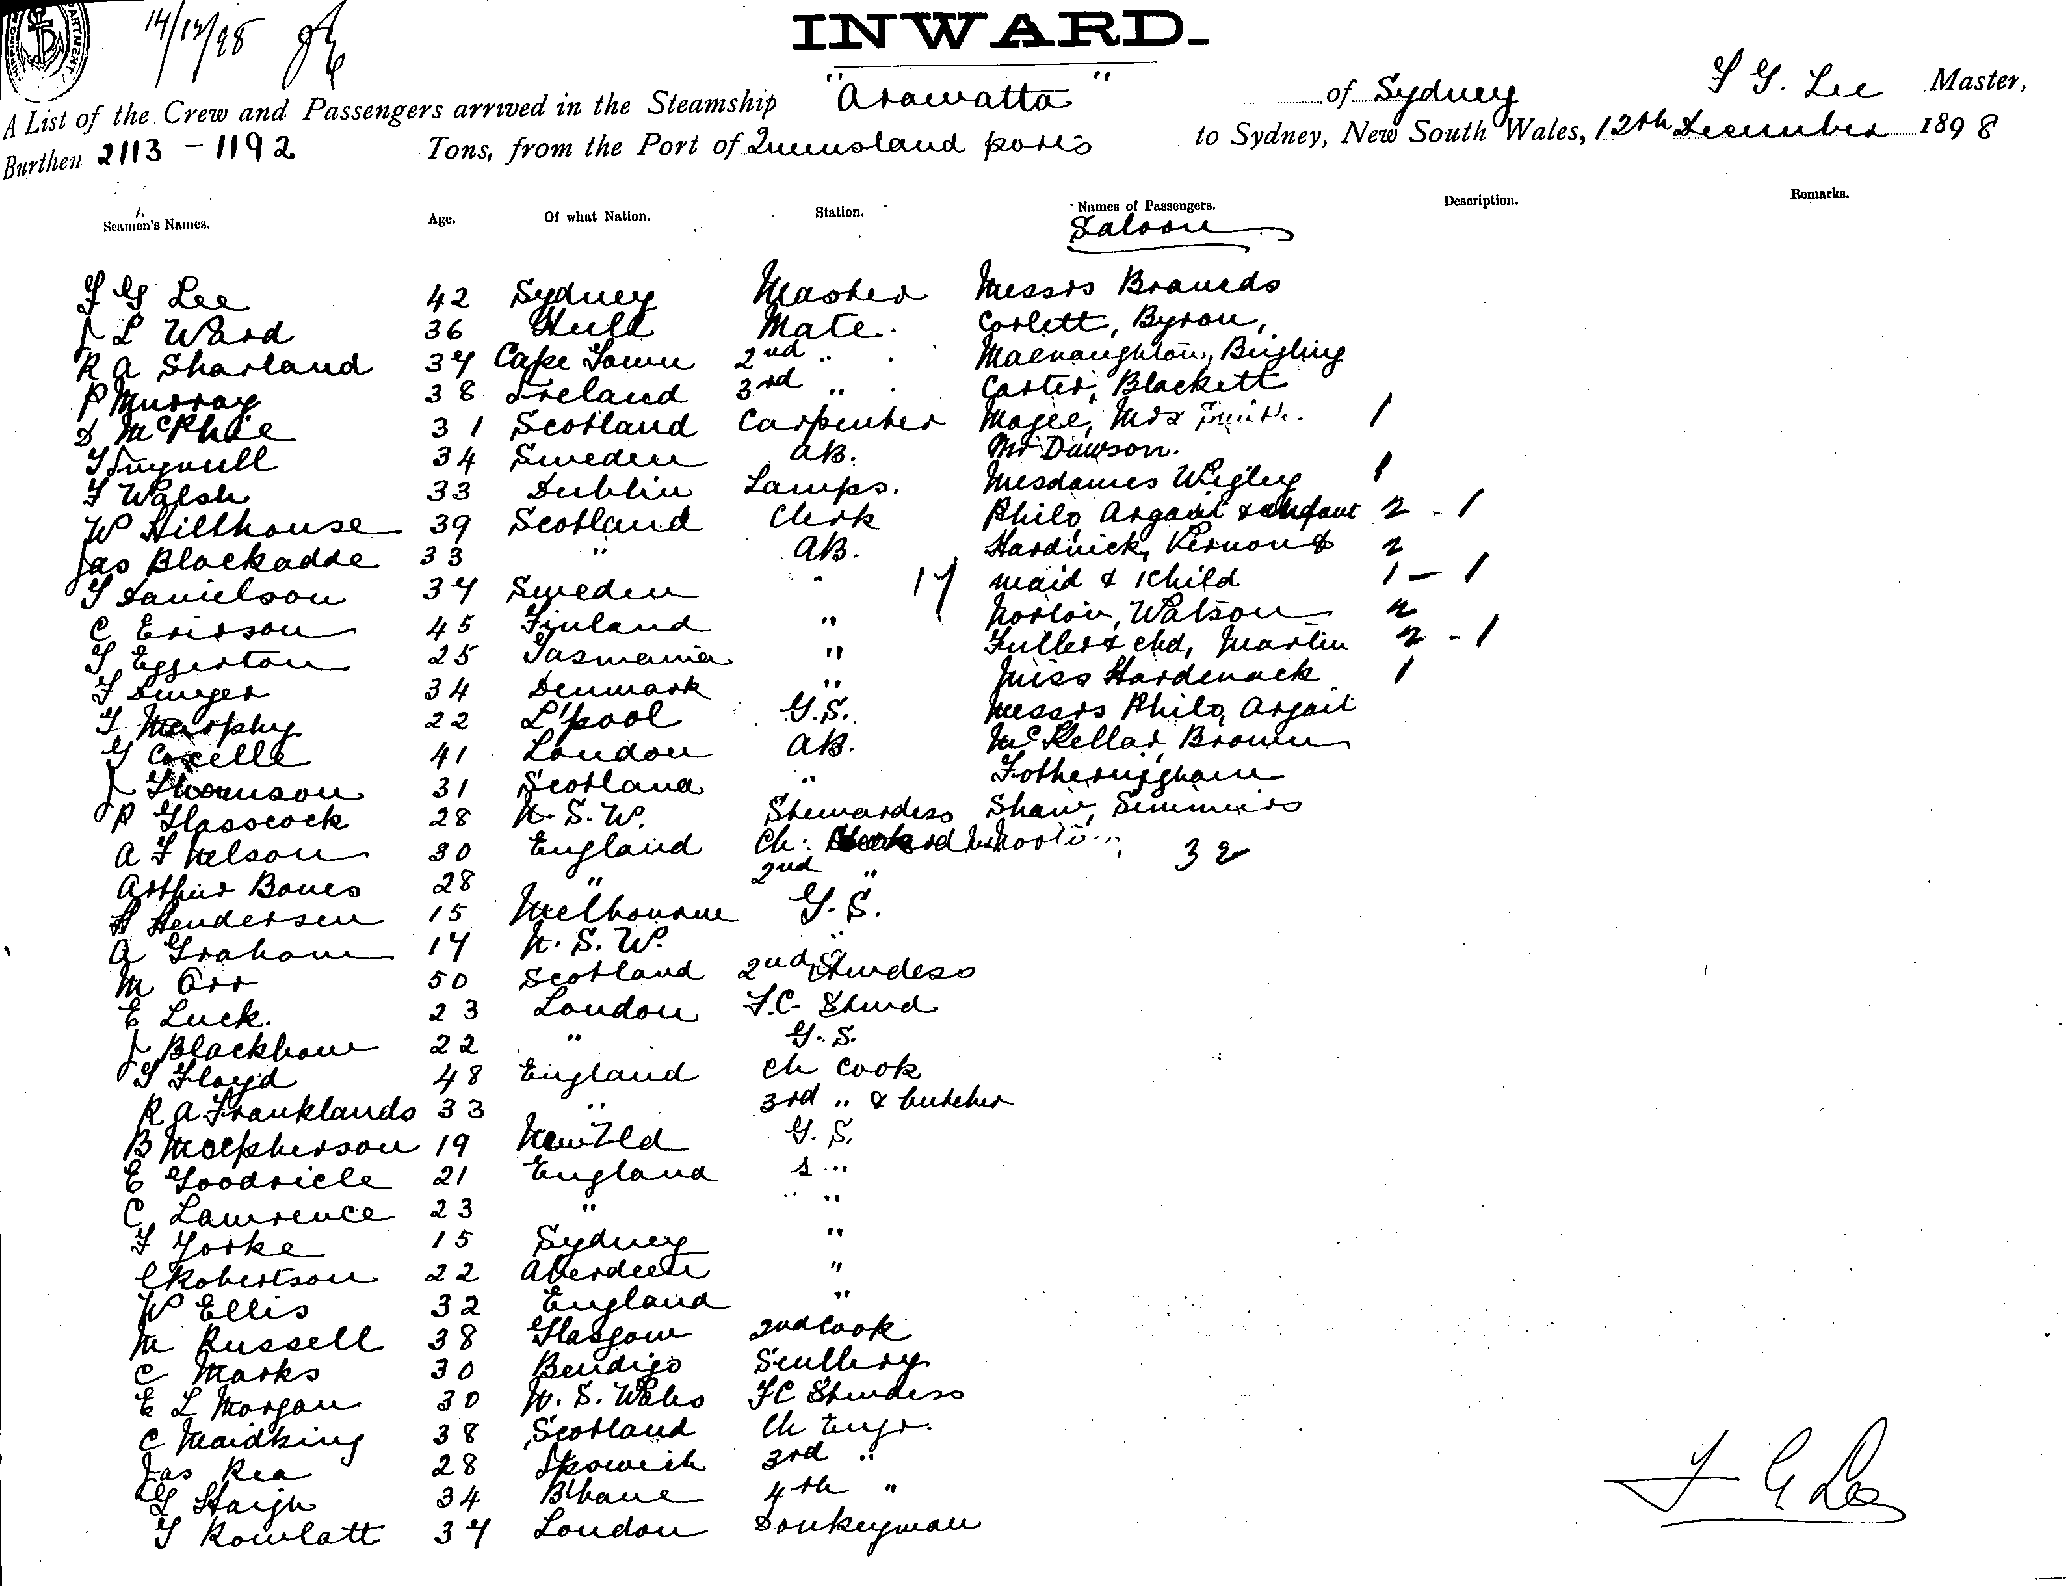 14/12/98
INWARD.
A List of the Crew and Passengers arrived in the Steamship "Arawatta" of Sydney F G. Lee Master,
Burthen 2113 - 1192 Tons, from the Port of Queensland ports to Sydney, New South Wales, 12th December 1898
Seamen's Names. Age. Of what Nation. Station. Names of Passengers. Description. Remarks.
Saloon
F G Lee 42 Sydney Master Messrs
J L Ward 36 Hull Mate. Corlett, Byron,
R A Sharland 37 Cape Town 2nd " Macnaughton,
P Murray 38 Ireland 3rd " Carter, Blackett
D McPhie 31 Scotland Carpenter Magee, Mrs Smith. 1
34 Sweden AB. Mr Dawson.
F Walsh 33 Dublin Lamps. Mesdames Wigley 1
W Hillhouse 39 Scotland Clerk Philo, Argait & infant 2 - 1
Jas Blackadde 33 " AB. Hardwick, Vernon & 2
Danielson 37 Sweden " 17 maid & 1 child 1 - 1
C Ericson 45 Finland " Norton, Watson 2
Eggerton 25 Tasmania " Fuller & chd, Martin 2 - 1
34 Denmark " Miss Hardenack 1
T Murphy 22 L'pool G.S. Messrs Philo, Argait
G Coxelle 41 London AB. McKellar, Brown
J Thomson 31 Scotland " Fotheringham
P Glasscock 28 N. S. W. Stewardess Shaw, Simmers
A F Nelson 30 England Ch: 32
Arthur Bones 28 " 2nd "
H Hendersen 15 Melbourne G. S.
A Graham 17 N. S. W. "
M Orr 50 Scotland 2nd Stwdess
E Luck. 23 London F.C. Stwd
J Blackhow 22 " G. S.
Floyd 48 England Ch Cook
R A Franklands 33 " 3rd " & butcher
B Macpherson 19 New Zld G. S.
E Goodricle 21 England "
C Lawrence 23 " "
F Yorke 15 Sydney "
C Robertson 22 Aberdeen "
W Ellis 32 England "
M Russell 38 Glasgow 2nd Cook
C Marks 30 Bendigo Scullery
E L Morgan 30 N. S. Wales FC Stwdess
C Maidking 38 Scotland Ch Engr.
Jas Rea 28 Ipswich 3rd "
G Haigh 34 B'bane 4th "
T Rowlatt 37 London Donkeyman
F G Lee